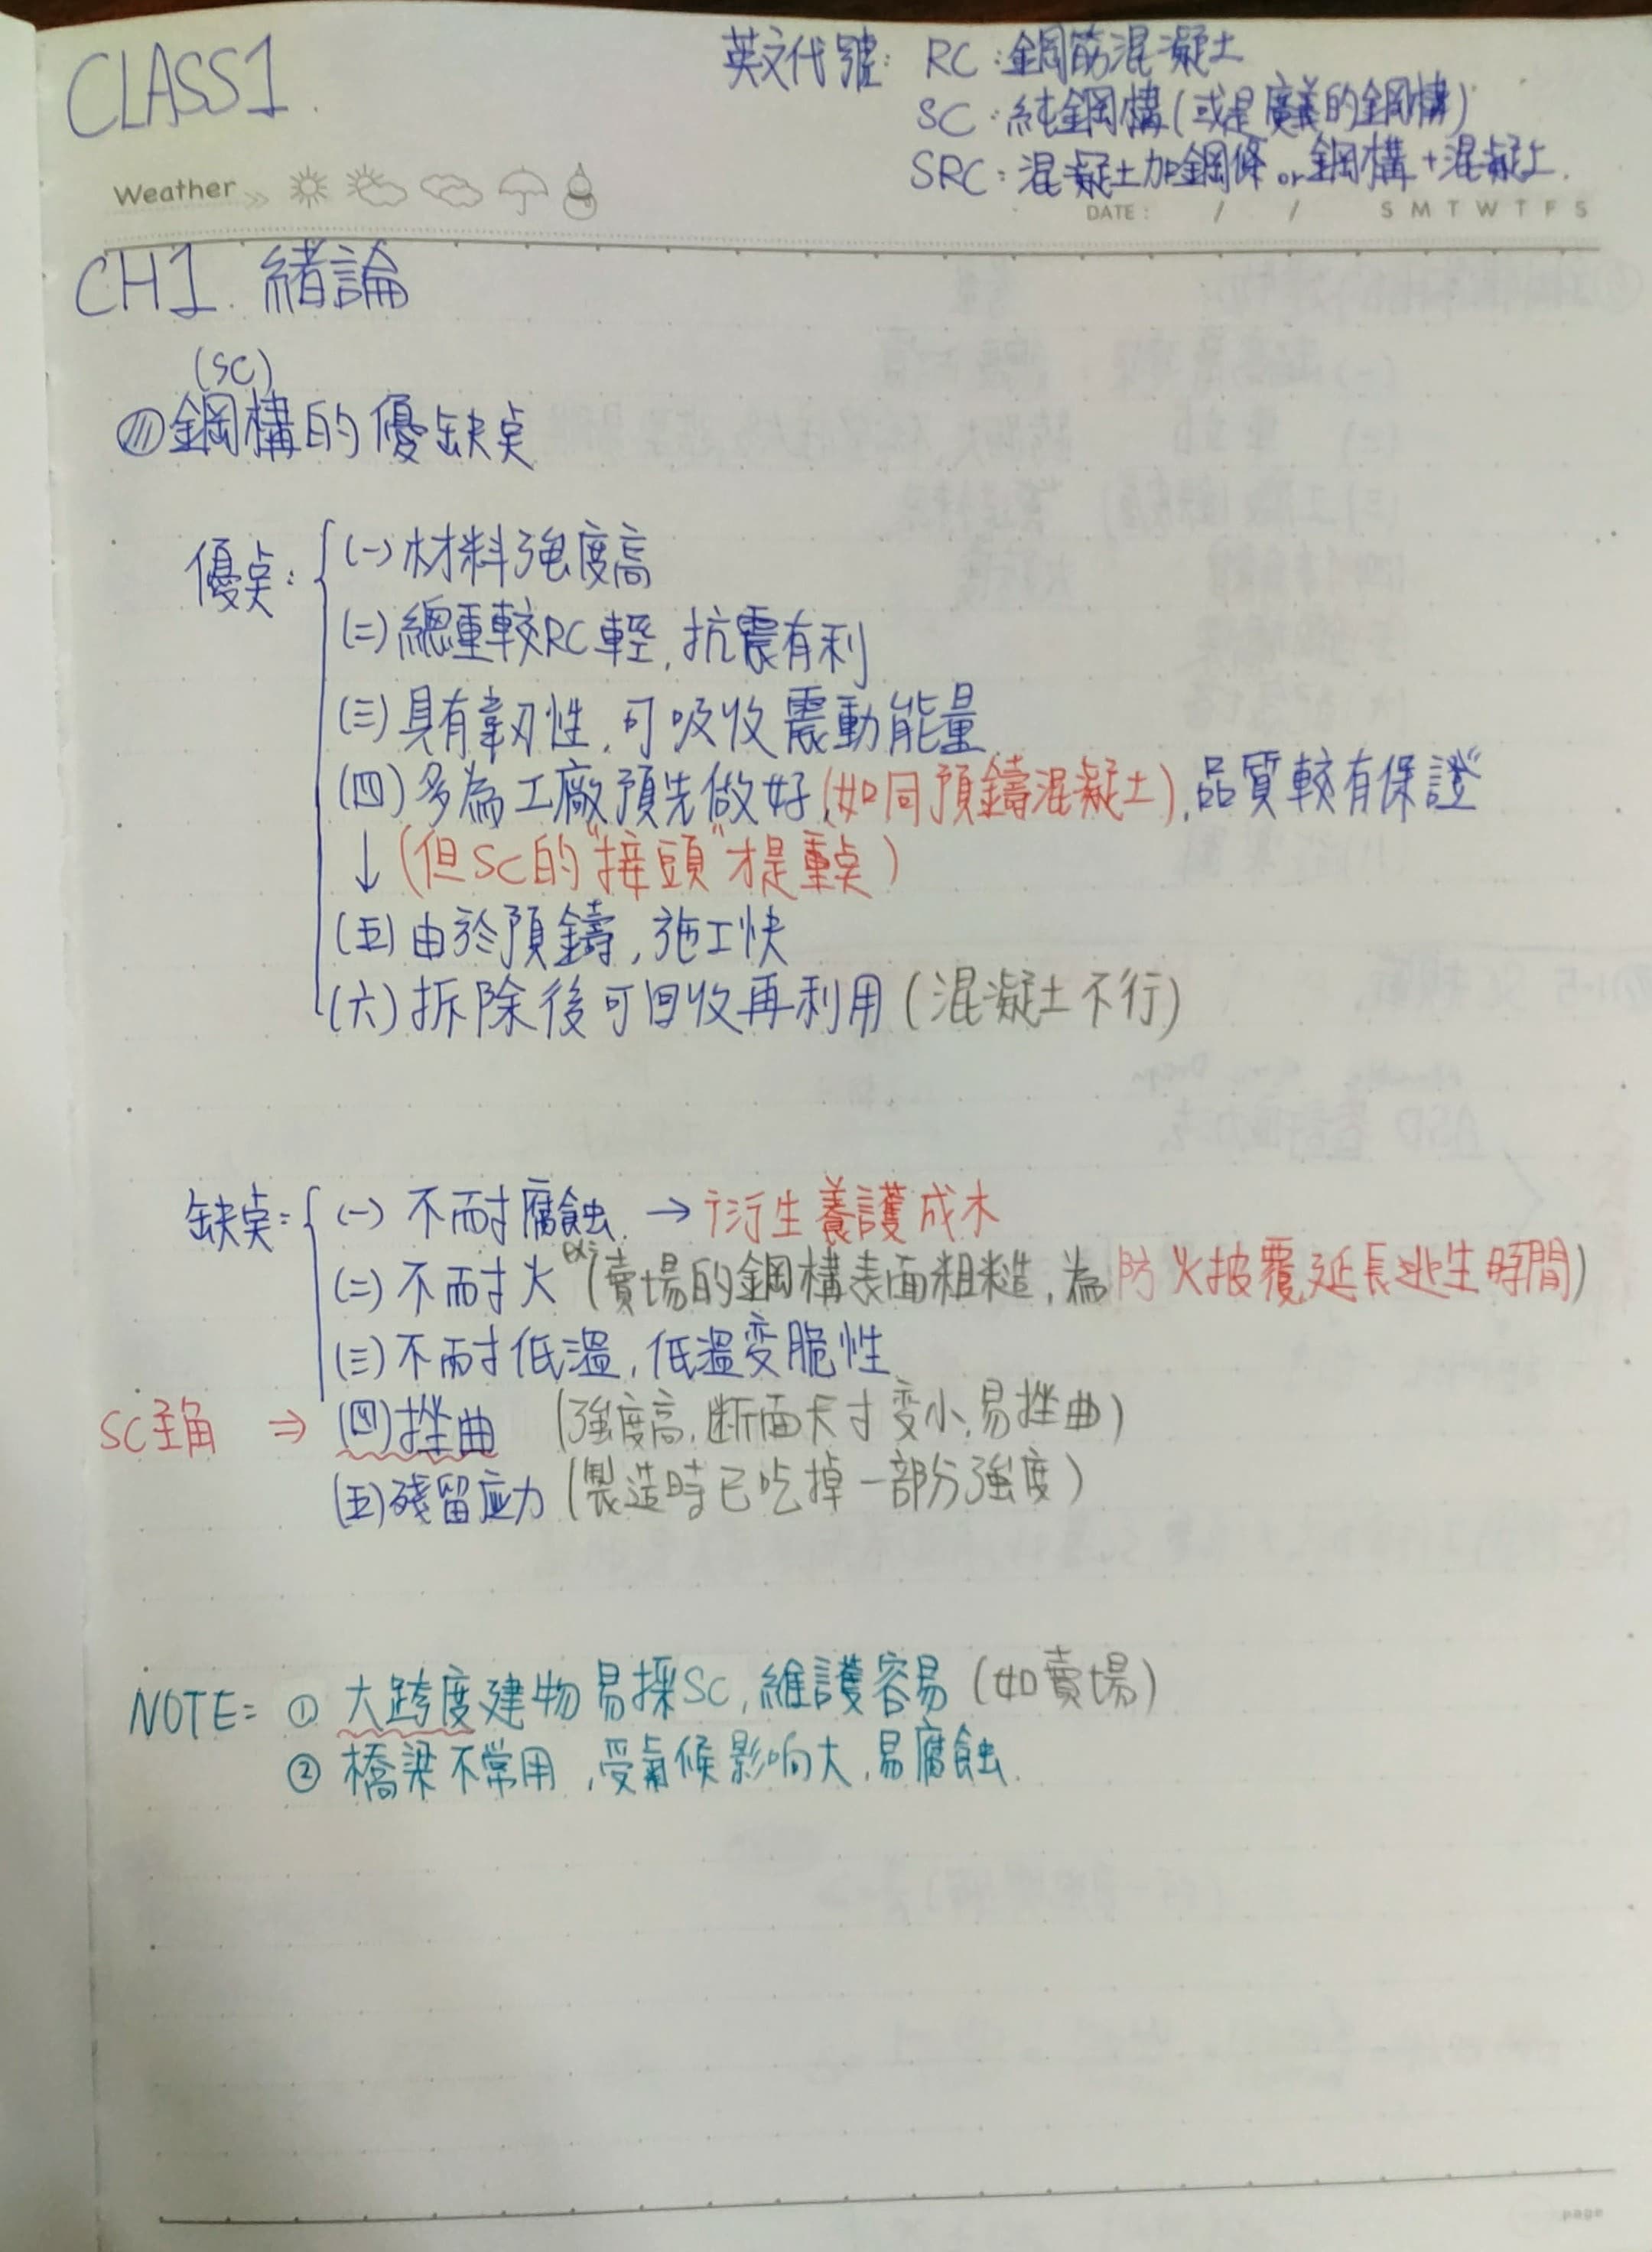 CLASS1.
英文代號: RC:鋼筋混凝土
SC:純鋼構(或是廣義的鋼構)
SRC:混凝土加鋼條 or 鋼構+混凝土.
Weather
DATE: / / S M T W T F S
CH1. 緒論
(SC)
鋼構的優缺点
優点:
(一)材料強度高
(二)總重較RC輕,抗震有利
(三)具有韌性,可吸收震動能量
(四)多為工廠預先做好(如同預鑄混凝土),品質較有保證
↓(但SC的"接頭"才是重点)
(五)由於預鑄,施工快
(六)拆除後可回收再利用(混凝土不行)
缺点:
(一)不耐腐蝕. →衍生養護成本
(二)不耐火 ex:(賣場的鋼構表面粗糙,為防火披覆延長逃生時間)
(三)不耐低溫,低溫变脆性
SC主角 ⇒ (四)挫曲 (強度高,断面尺寸变小,易挫曲)
(五)殘留应力(製造時已吃掉一部分強度)
NOTE: ① 大跨度建物易採SC,維護容易(如賣場)
② 橋梁不常用,受氣候影响大,易腐蝕.
page